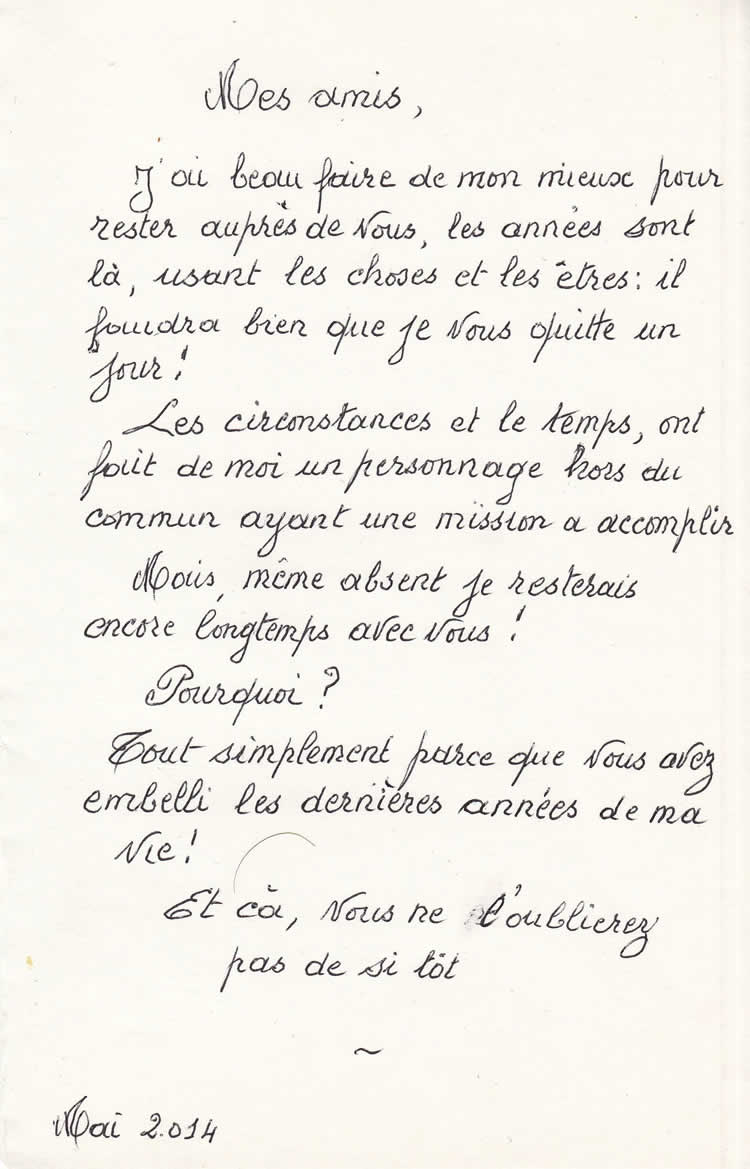 Mes amis,
J'ai beau faire de mon mieux pour
rester auprès de vous, les années sont
là, usant les choses et les êtres: il
faudra bien que je vous quitte un
jour!
Les circonstances et le temps, ont
fait de moi un personnage hors du
commun ayant une mission a accomplir
Mais, même absent je resterais
encore longtemps avec vous!
Pourquoi?
Tout simplement parce que vous avez
embelli les dernières années de ma
vie!
Et cà, vous ne l'oublierez
pas de si tôt
~
Mai 2.014